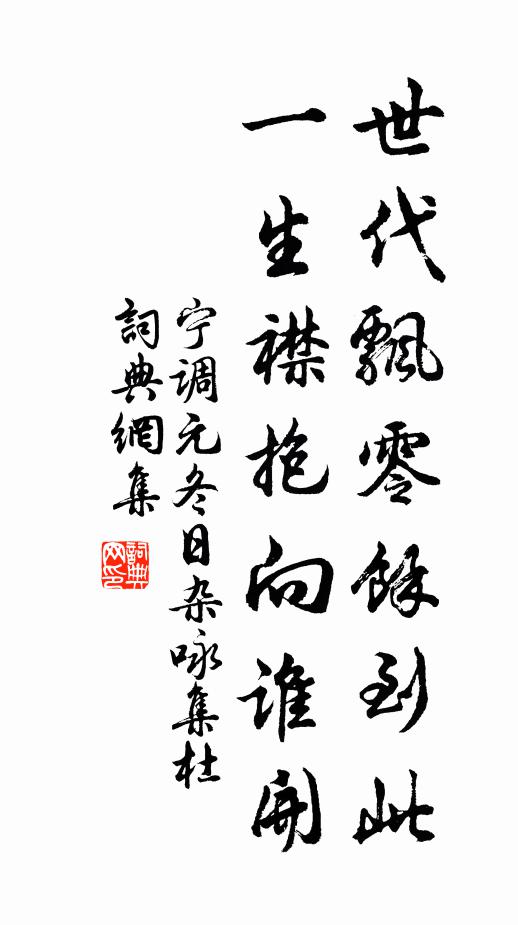 世代飄零餘到此
一生襟抱向谁開
宁调元冬日杂咏集杜
詞典網集
詞典
网印